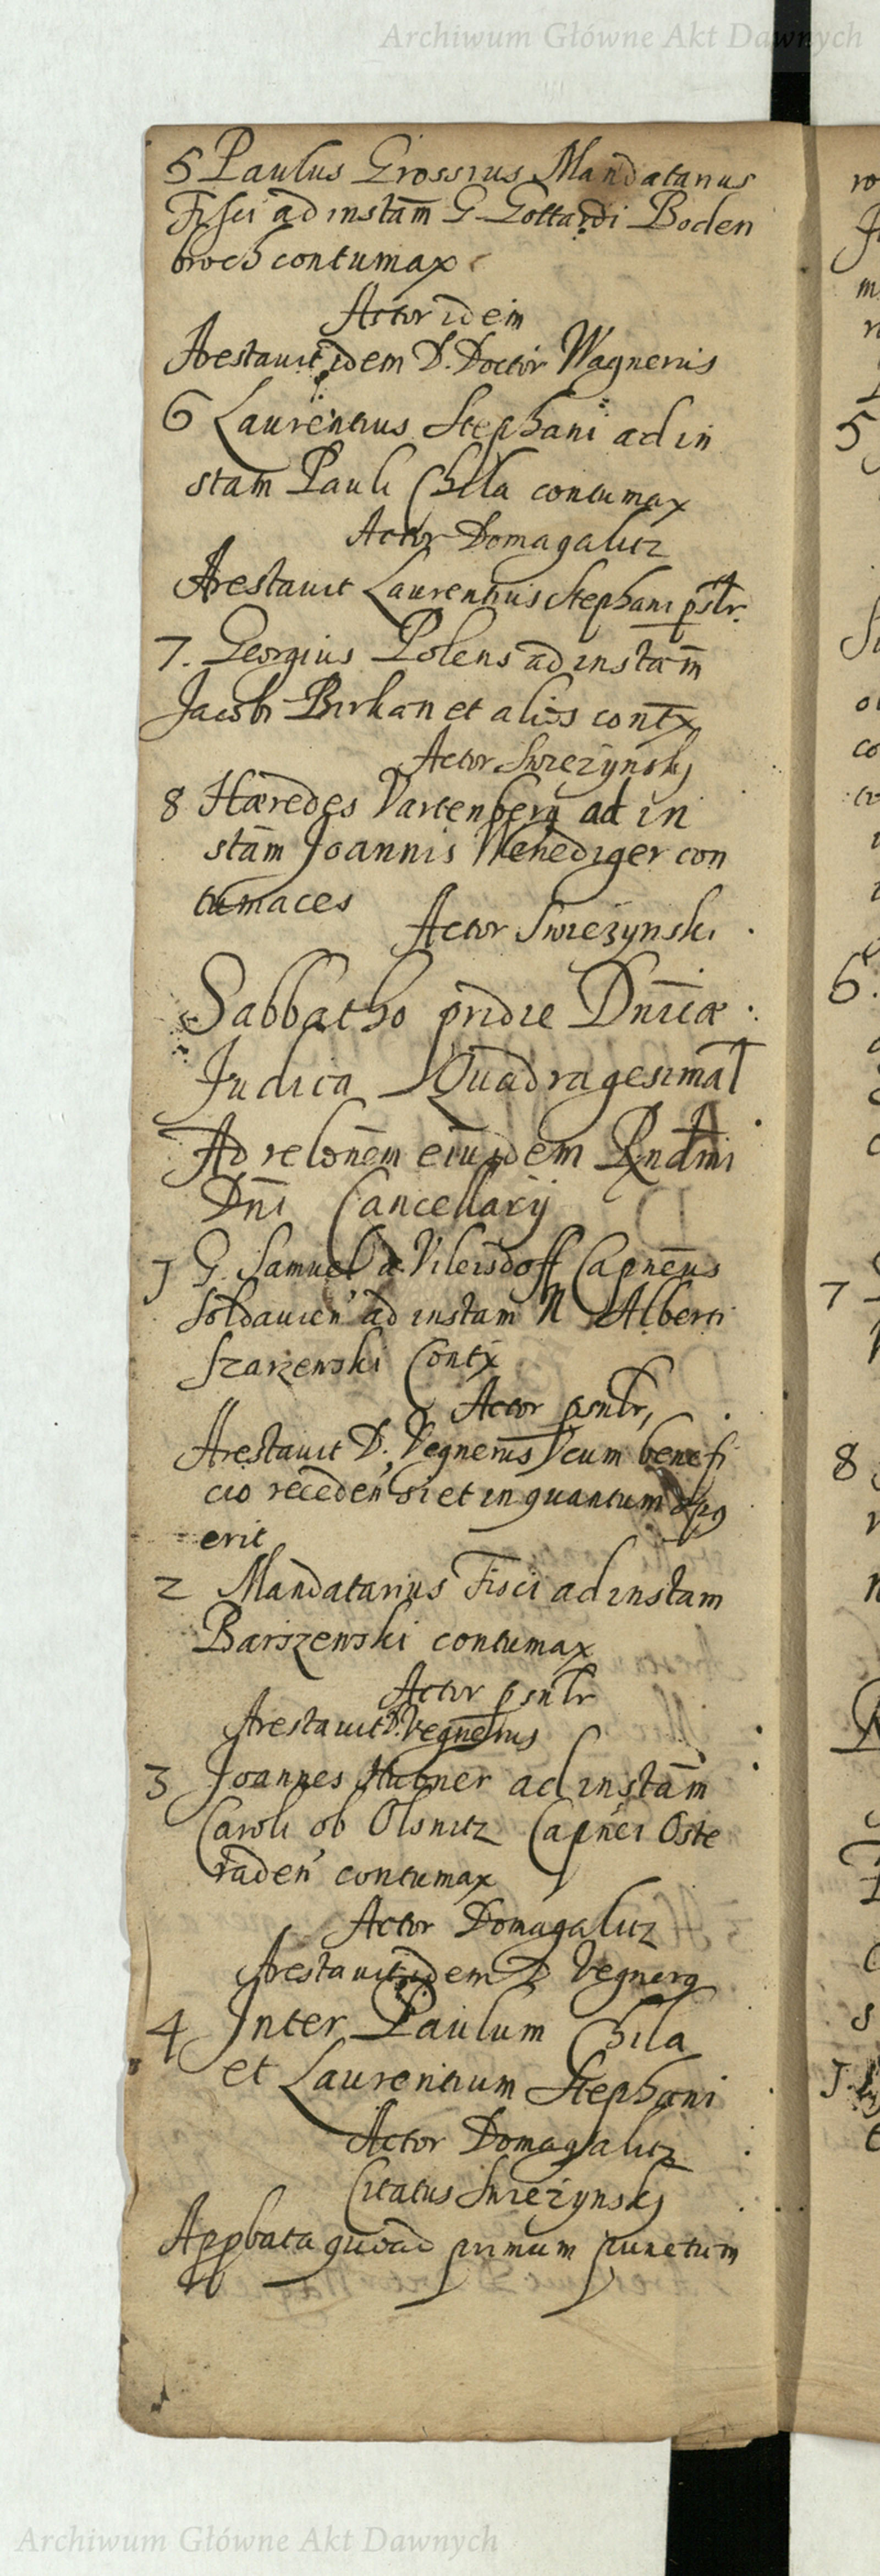 Archiwum Główne Akt Dawnych
5 Paulus Grossius Mandatarius
Fisci ad instam̄ G. Gottardi Boden
broch contumax
Actor idem
Arestavit idem D. Doctor Wagnerus
6 Laurentius Stephani ad in
stam̄ Pauli Chila contumax
Actor Domagalitz
Arestavit Laurentius Stephani pśtr.
7. Georgius Polens ad instam̄
Jacobi Birkan et alios contx
Actor Swieżynskj
8 Hæredes Vartenberg ad in
stam̄ Joannis Wenediger con
tumaces
Actor Swieżynski
Sabbatho pridie Dnīcæ
Judica Quadragesimal
Ad relonēm eiusdem Rndmi
Dnī Cancellarij
1 G. Samuel a Vilersdoff Capnēus
Soldavien ad instam N Alberti
Szarzewski Contx
Actor psnlr,
Arestavit D. Vegnerus cum benefi
cio receden si et in quantum opg
erit
2 Mandatarius Fisci ad instam
Barszewski contumax
Actor psnlr
Arestavit D. Vegnerus
3 Joannes Hubner ad instam̄
Caroli ob Olsnitz Capnēi Oste
raden contumax
Actor Domagalitz
Arestavit idem D Vegnerg
4 Inter Paulum Chila
et Laurentium Stephani
Actor Domagalitz
Citatus Swieżynskj
Appbata quoad primum punctum
5
6.
7
8
Archiwum Główne Akt Dawnych